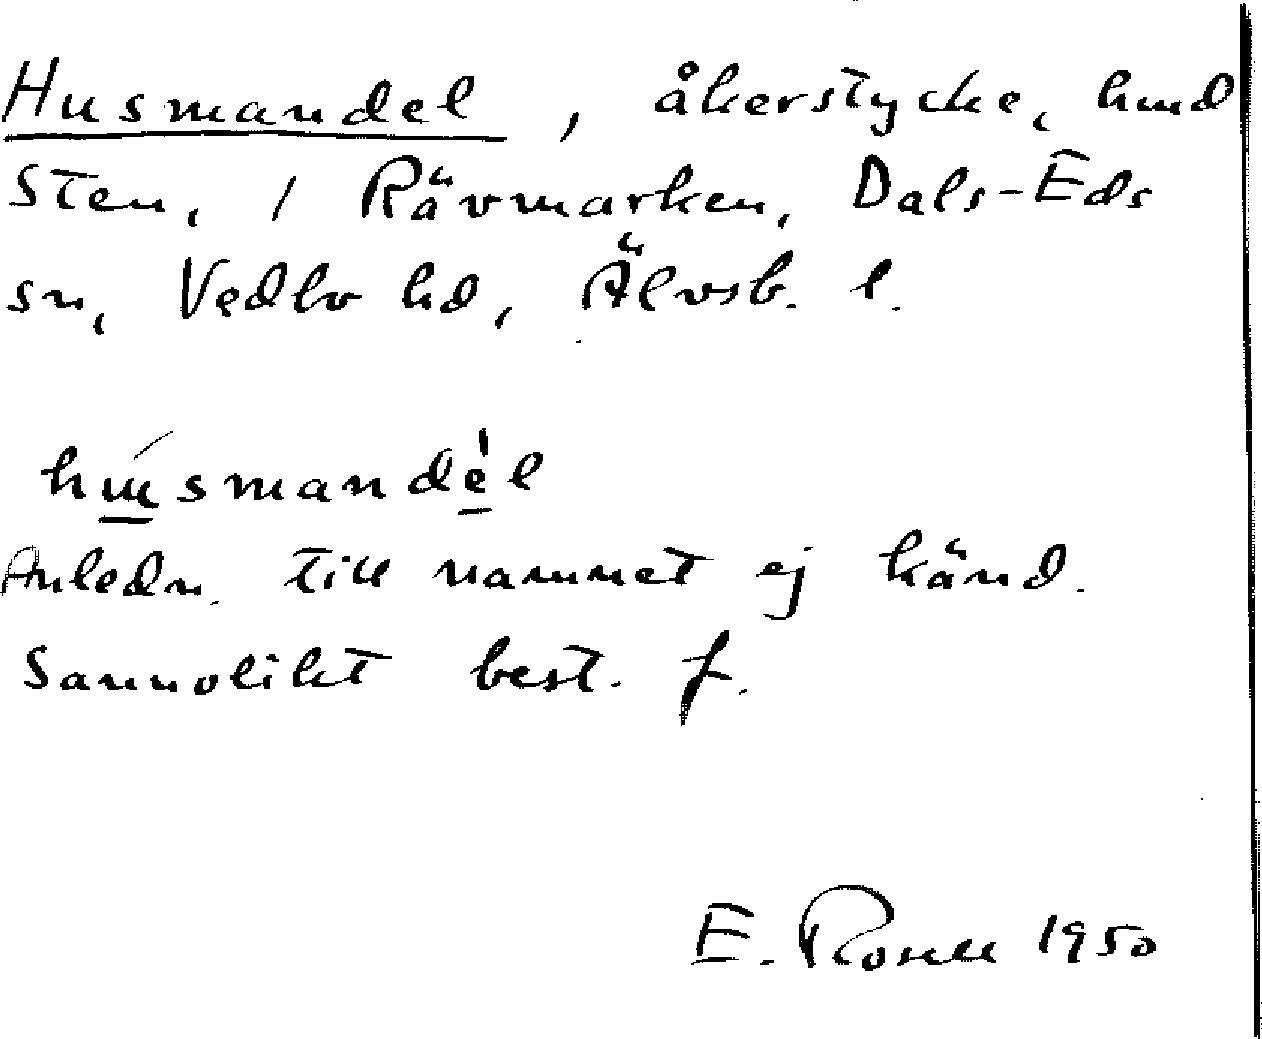 Husmandel, åkerstycke, hmd
Sten, 1 Rävmarken, Dals-Eds
sn, Vedbo hd, Älvsb. l.
húsmandèl
Anledn. till namnet ej känd.
Sannolikt best. f.
E. Rosell 1950